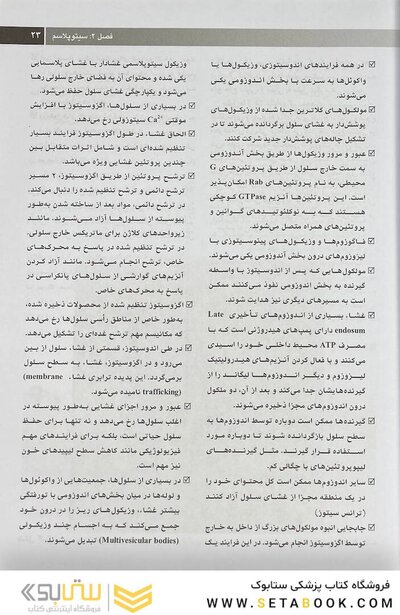 فصل ۲: سیتوپلاسم ۲۳
در همه فرایندهای اندوسیتوزی، وزیکول‌ها یا
واکوئل‌ها به سرعت با بخش اندوزومی یکی
می‌شوند.
مولکول‌های کلاترین جدا شده از وزیکول‌های
پوشش‌دار به غشای سلول برگردانده می‌شوند تا در
تشکیل چاله‌های پوشش‌دار جدید شرکت کنند.
عبور و مرور وزیکول‌ها از طریق بخش آندوزومی
به سمت خارج سلول از طریق پروتئین‌های G
محیطی، به نام پروتئین‌های Rab امکان‌پذیر
است. این پروتئین‌ها آنزیم GTPase کوچکی
هستند که به نوکلئوتیدهای گوانین و
پروتئین‌های همراه متصل می‌شوند.
فاگوزوم‌ها و وزیکول‌های پینوسیتوزی با
لیزوزوم‌های درون بخش آندوزومی یکی می‌شوند.
مولکول‌هایی که پس از اندوسیتوز با واسطه
گیرنده به بخش اندوزومی نفوذ می‌کنند ممکن
است به مسیرهای دیگری نیز هدایت شوند.
غشاء بسیاری از اندوزوم‌های تأخیری Late
endosum دارای پمپ‌های هیدروژنی است که با
مصرف ATP محیط داخلی خود را اسیدی
می‌کنند و با فعال کردن آنزیم‌های هیدرولیتیک
لیزوزوم و دیگر اندوزوم‌ها لیگاند را از
گیرنده‌هایشان جدا می‌کند و بعد از آن، دو ملکول
درون اندوزوم‌های مجزا ذخیره می‌شوند.
گیرنده‌ها ممکن است دوباره توسط اندوزوم‌ها به
سطح سلول بازگردانده شوند تا دوباره مورد
استفاده قرار گیرند. مثل گیرنده‌های
لیپوپروتئین‌های با چگالی کم.
سایر اندوزوم‌ها ممکن است کل محتوای خود را
در یک منطقه مجزا از غشای سلول آزاد کنند
(ترانس سیتوز)
جابجایی انبوه مولکول‌های بزرگ از داخل به خارج
توسط اگزوسیتوز انجام می‌شود. در این فرایند یک
وزیکول سیتوپلاسمی غشادار با غشای پلاسمایی
یکی شده و محتوای آن به فضای خارج سلولی رها
می‌شود و یکپارچگی غشای سلول حفظ می‌شود.
در بسیاری از سلول‌ها، اگزوسیتوز با افزایش
موقتی Ca²⁺ سیتوزولی رخ می‌دهد.
الحاق غشاء، در طول اگزوسیتوز فرایند بسیار
تنظیم شده‌ای است و شامل اثرات متقابل بین
چندین پروتئین غشایی ویژه می‌باشد.
ترشح پروتئین از طریق اگزوسیتوز، ۲ مسیر
ترشح دائمی و ترشح تنظیم شده را دنبال می‌کند.
در ترشح دائمی، مواد بعد از ساخته شدن به‌طور
پیوسته از سلول‌ها آزاد می‌شوند. مانند
زیرواحدهای کلاژن برای ماتریکس خارج سلولی.
در ترشح تنظیم شده در پاسخ به محرک‌های
خاص، ترشح انجام می‌شود. مانند آزاد کردن
آنزیم‌های گوارشی از سلول‌های پانکراسی در
پاسخ به محرک‌های خاص.
اگزوسیتوز تنظیم شده از محصولات ذخیره شده،
به‌طور خاص از مناطق رأسی سلول‌ها رخ می‌دهد
که مکانیسم مهم ترشح غده‌ای را تشکیل می‌دهد.
در طی اندوسیتوز، قسمتی از غشا، سلول از بین
می‌رود و در اگزوسیتوز، غشاء به سطح سلول
برمی‌گردد. این پدیده ترابری غشا، (membrane
trafficking) نامیده می‌شود.
عبور و مرور اجزای غشایی به‌طور پیوسته در
اغلب سلول‌ها رخ می‌دهد و نه تنها برای حفظ
سلول حیاتی است، بلکه برای فرایندهای مهم
فیزیولوژیکی مانند کاهش سطح لیپیدهای خون
نیز مهم است.
در بسیاری از سلول‌ها، جمعیت‌هایی از واکوئول‌ها
و لوله‌ها در میان بخش‌های اندوزومی با تورفتگی
بیشتر غشا، وزیکول‌های ریز را در درون خود
جمع می‌کند که به اجسام چند وزیکولی
(Multivesicular bodies) تبدیل می‌شوند.
فروشگاه کتاب پزشکی ستابوک
WWW.SETABOOK.COM
ستابوک
فروشگاه اینترنتی کتاب